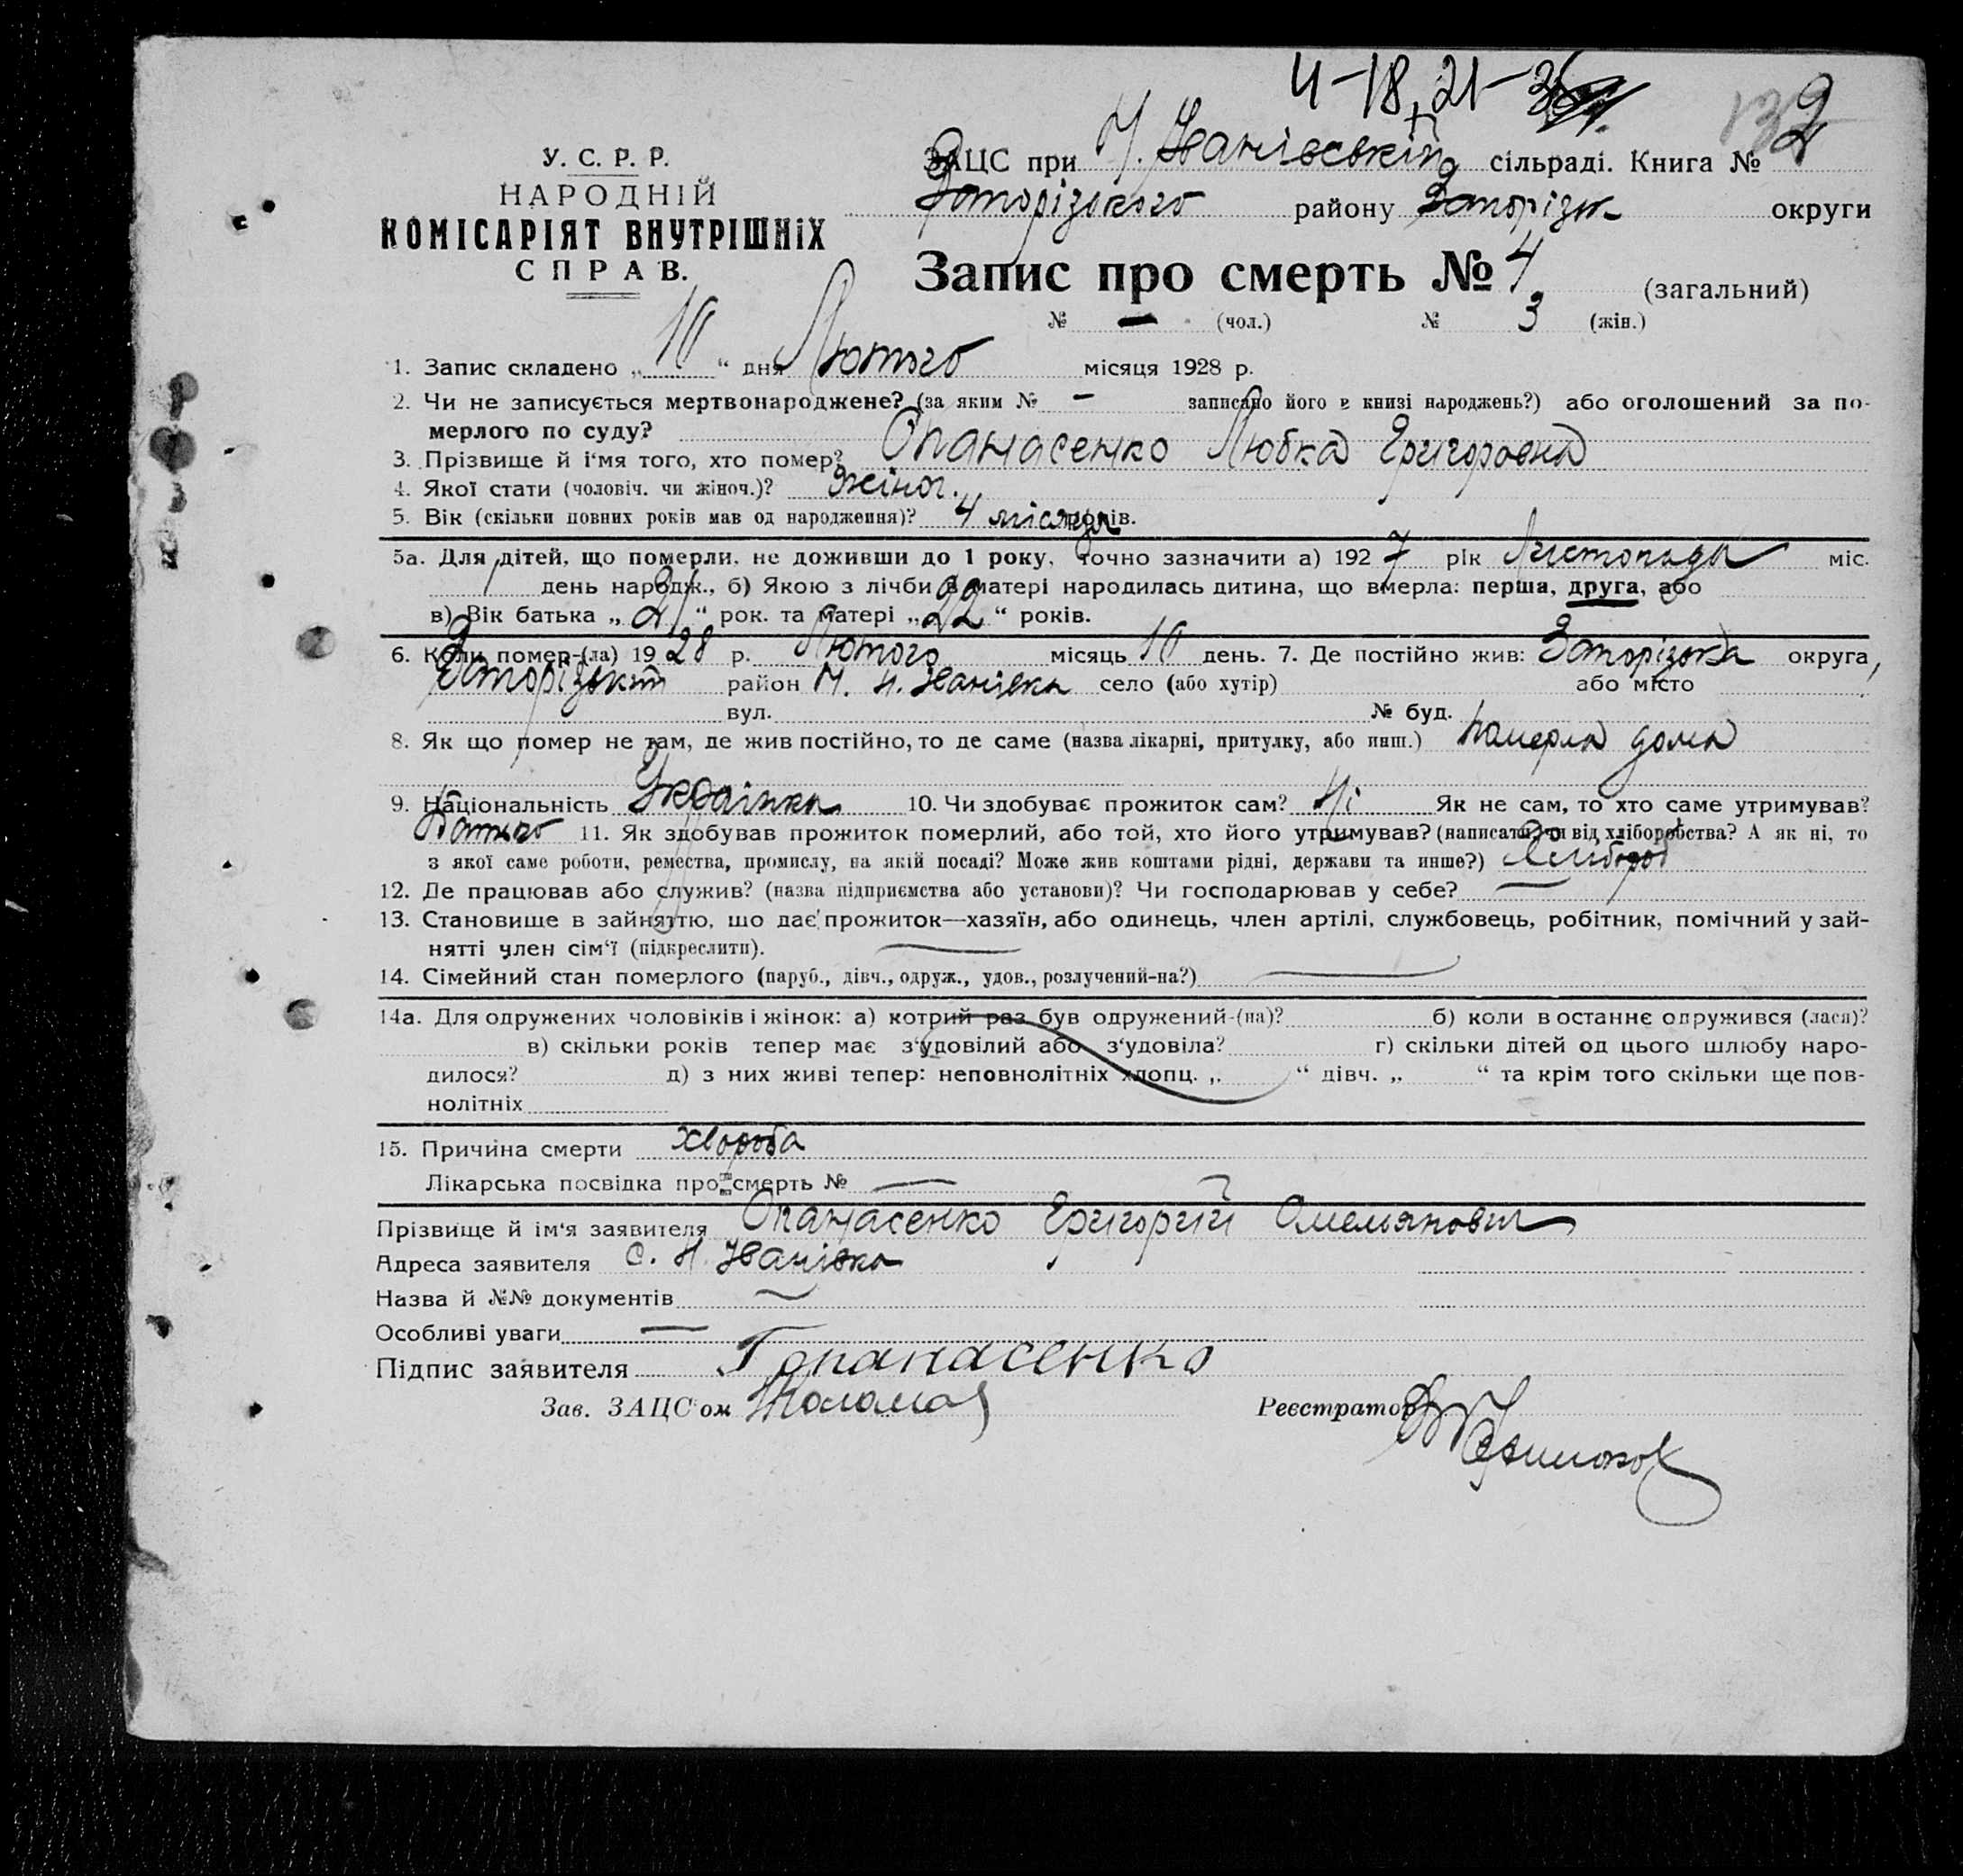 4-18, 21-
132
2
У. С. Р. Р.
НАРОДНІЙ
КОМІСАРІЯТ ВНУТРІШНІХ
СПРАВ.
ЗАЦС при Н. Іванівській сільраді. Книга №
Запорізького району Запорізьк округи
Запис про смерть № 4 (загальний)
№ — (чол.) № 3 (жін.)
1. Запис складено „ 10 “ дня Лютого місяця 1928 р.
2. Чи не записується мертвонароджене? (за яким № — записано його в книзі народжень?) або оголошений за по-
мерлого по суду?
3. Прізвище й і'мя того, хто помер? Опанасенко Любка Григоровна
4. Якої стати (чоловіч. чи жіноч.)? жіноч.
5. Вік (скільки повних років мав од народження)? 4 місяця років.
5а. Для дітей, що померли, не доживши до 1 року, точно зазначити а) 192 7 рік Листопада міс.
1 день народж., б) Якою з лічби в матері народилась дитина, що вмерла: перша, друга, або
в) Вік батька „ 21 “ рок. та матері „ 22 “ років.
6. Коли помер-(ла) 19 28 р. Лютого місяць 10 день. 7. Де постійно жив: Запорізька округа,
Запорізький район Н. Іванівка село (або хутір) або місто
вул. № буд.
8. Як що помер не там, де жив постійно, то де саме (назва лікарні, притулку, або инш.) померла дома
9. Національність Українка 10. Чи здобуває прожиток сам? Ні Як не сам, то хто саме утримував?
Батько 11. Як здобував прожиток померлий, або той, хто його утримував? (написати, чи від хліборобства? А як ні, то
з якої саме роботи, ремества, промислу, на якій посаді? Може жив коштами рідні, держави та инше?) Хлібороб
12. Де працював або служив? (назва підприємства або установи)? Чи господарював у себе? —
13. Становище в зайняттю, що дає прожиток—хазяїн, або одинець, член артілі, службовець, робітник, помічний у зай-
нятті член сім'ї (підкреслити). —
14. Сімейний стан померлого (паруб., дівч., одруж., удов., розлучений-на?) —
14а. Для одружених чоловіків і жінок: а) котрий раз був одружений-(на)? б) коли в останнє одружився (лася)?
в) скільки років тепер має з'удовілий або з'удовіла? г) скільки дітей од цього шлюбу наро-
дилося? д) з них живі тепер: неповнолітніх хлопц. „ “ дівч. „ “ та крім того скільки ще пов-
нолітніх
15. Причина смерти хвороба
Лікарська посвідка про смерть № —
Прізвище й ім'я заявителя Опанасенко Григорій Омелянович
Адреса заявителя с. Н. Іванівка
Назва й №№ документів —
Особливі уваги —
Підпис заявителя Г опанасенко
Зав. ЗАЦС'ом
Реєстратор